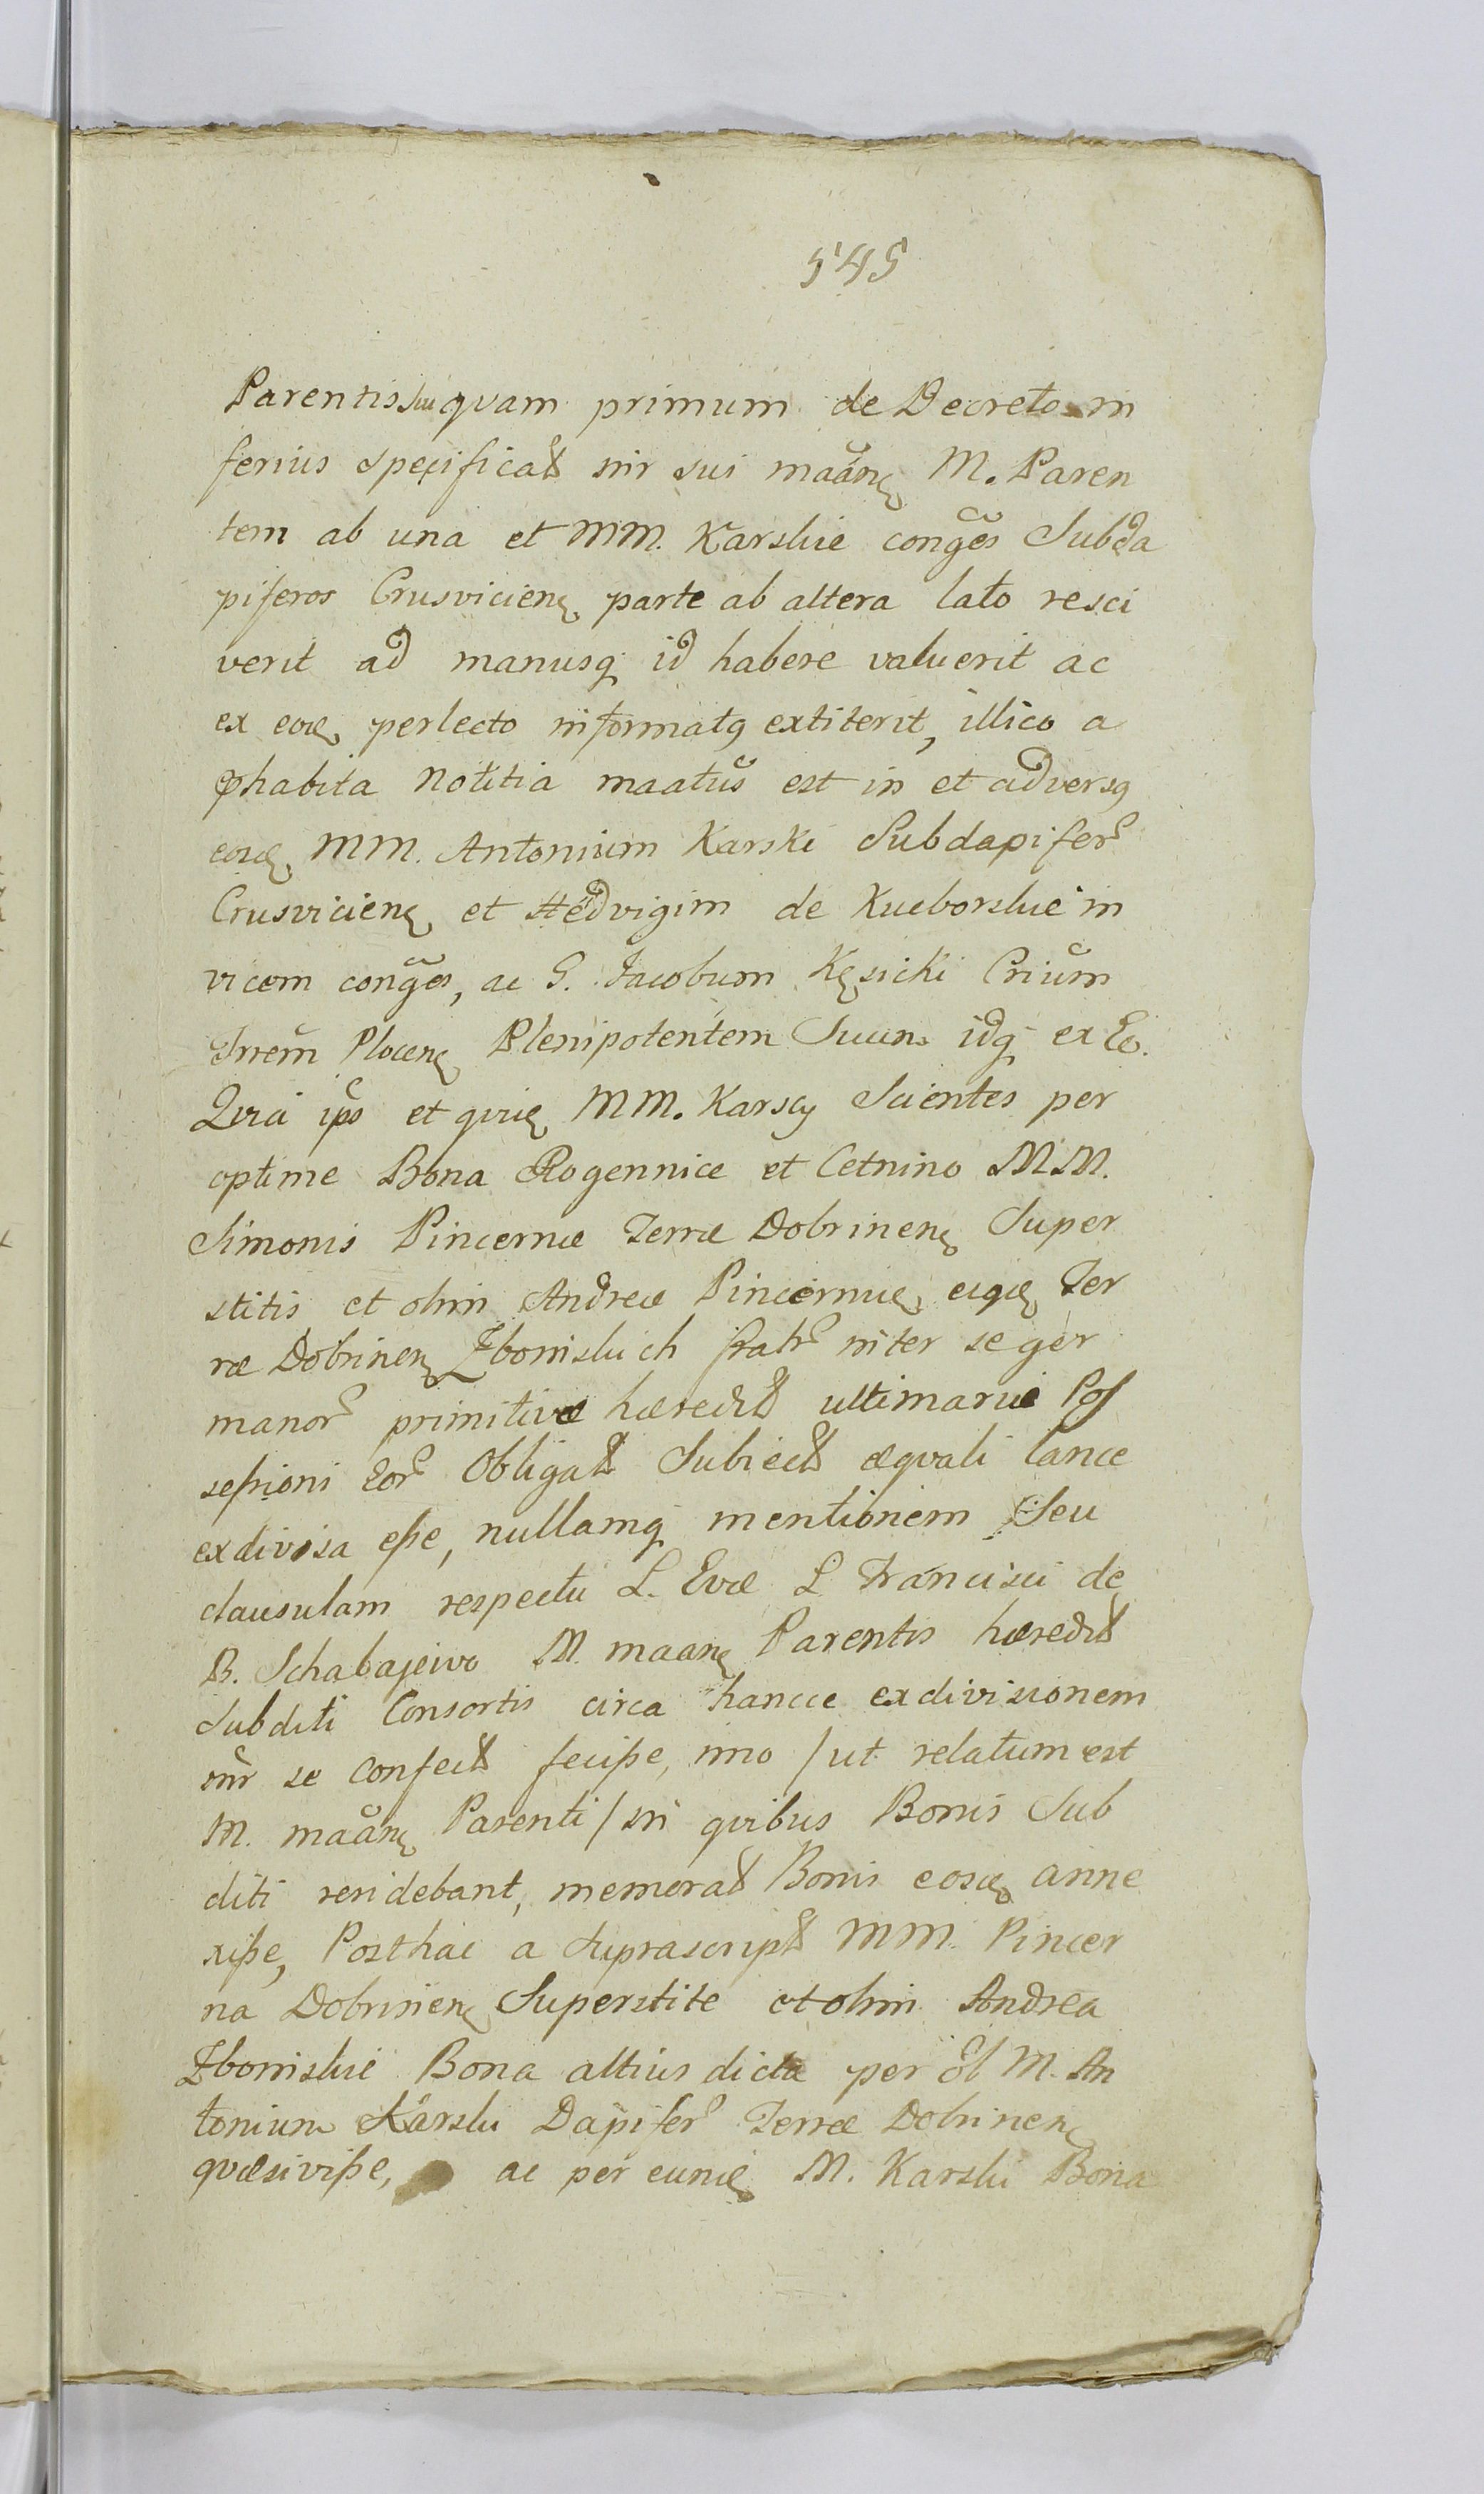 545
Parentis sui quam primum de Decreto in
ferius specificat inr sui maan M. Paren
tem ab una et MM. Karskie conges Subda
piferos Crusvicien parte ab altera lato resci
verit ad manusq id habere valuerit ac
ex eod perlecto informatq extiterit, illico a
phabita notitia maatus est in et adversq
eosd MM. Antonium Karski Subdapifer
Crusvicien et Hedvigim de Kucborskie in
vicem conges, ac G. Jacobum Kęsicki Crium
Trrem Plocen Plenipotentem Suum idq ex Eo.
Qvia ips et qvid MM. Karscy Scientes per
optime Bona Rogennice et Cetnino MM.
Simonis Pincernæ Terræ Dobrinen Super
stitis et olim Andreæ Pincernæ eiqd Ter
ræ Dobrinen Zboniskich fratr inter se ger
manor primitivæ hæredit ultimarie Pos
seßioni Eor Obligat Subiect æqvali lance
exdivisa eße, nullamq mentionem Seu
clausulam respectu L. Evæ L Francisci de
B. Schabajewo M. maan Parentis hæredit
Subditi Consortis circa hancce exdivisionem
inr se confect feciße, imo / ut relatum est
M. maan Parenti / in qvibus Bonis Sub
diti residebant, memorat Bonis eosd anne
xiße, Posthac a Suprascript MM. Pincer
na Dobrinen Superstite et olim Andrea
Zboniskie Bona altius dicta per Ol M. An
tonium Karski Dapifer Terræ Dobrinen
qvæsiviße, ac per eund M. Karski Bona